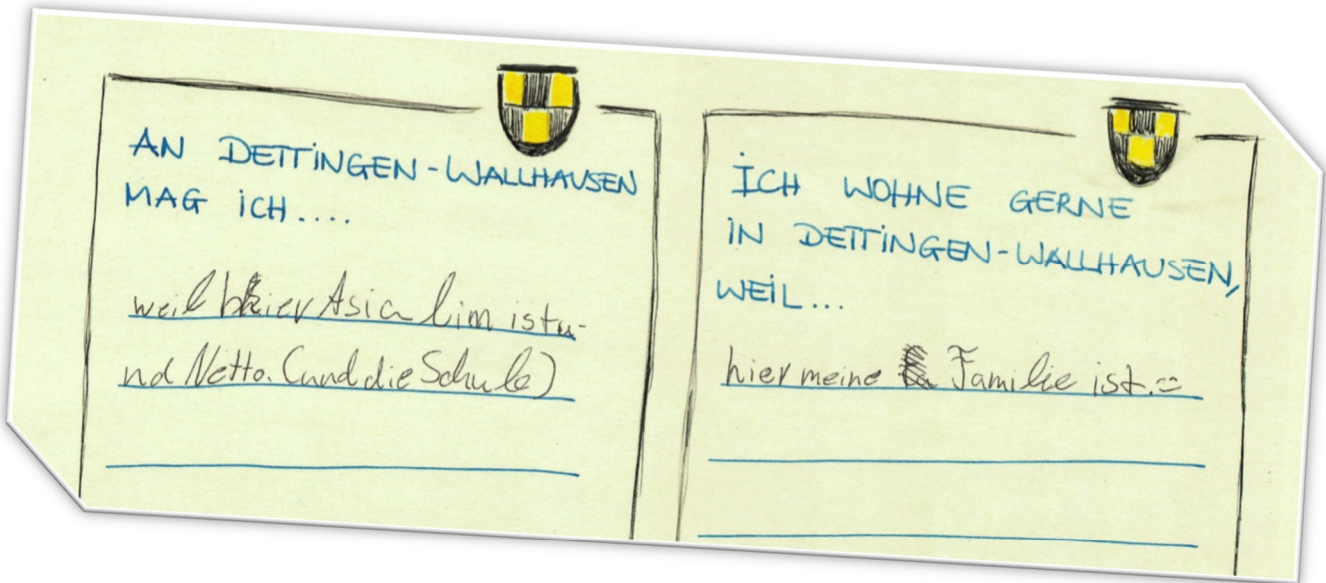 AN DETTINGEN-WALLHAUSEN
MAG ICH....
weil hier Asia lim ist u-
nd Netto. (und die Schule)
ICH WOHNE GERNE
IN DETTINGEN-WALLHAUSEN,
WEIL...
hier meine Familie ist.=